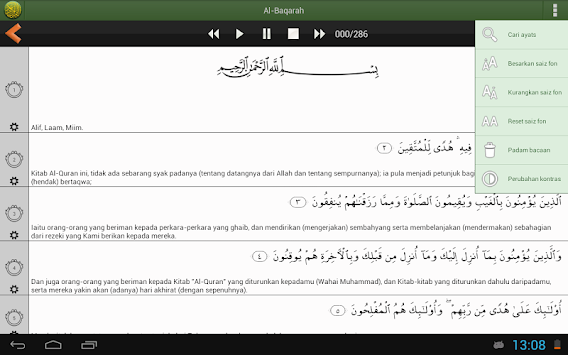 Al-Baqarah
000/286
Cari ayats
Besarkan saiz fon
Kurangkan saiz fon
Reset saiz fon
Padam bacaan
Perubahan kontras
بِسْمِ ٱللَّهِ ٱلرَّحْمَٰنِ ٱلرَّحِيمِ
1
Alif, Laam, Miim.
فِيهِ ۛ هُدًى لِّلْمُتَّقِينَ ٢
2
Kitab Al-Quran ini, tidak ada sebarang syak padanya (tentang datangnya dari Allah dan tentang sempurnanya); ia pula menjadi petunjuk bag
(hendak) bertaqwa;
ٱلَّذِينَ يُؤْمِنُونَ بِٱلْغَيْبِ وَيُقِيمُونَ ٱلصَّلَوٰةَ وَمِمَّا رَزَقْنَـٰهُمْ يُنفِقُونَ ٣
3
Iaitu orang-orang yang beriman kepada perkara-perkara yang ghaib, dan mendirikan (mengerjakan) sembahyang serta membelanjakan (mendermakan) sebahagian
dari rezeki yang Kami berikan kepada mereka.
وَٱلَّذِينَ يُؤْمِنُونَ بِمَآ أُنزِلَ إِلَيْكَ وَمَآ أُنزِلَ مِن قَبْلِكَ وَبِٱلْـَٔاخِرَةِ هُمْ يُوقِنُونَ ٤
4
Dan juga orang-orang yang beriman kepada Kitab "Al-Quran" yang diturunkan kepadamu (Wahai Muhammad), dan Kitab-kitab yang diturunkan dahulu daripadamu,
serta mereka yakin akan (adanya) hari akhirat (dengan sepenuhnya).
أُو۟لَـٰٓئِكَ عَلَىٰ هُدًى مِّن رَّبِّهِمْ ۖ وَأُو۟لَـٰٓئِكَ هُمُ ٱلْمُفْلِحُونَ ٥
5
13:08